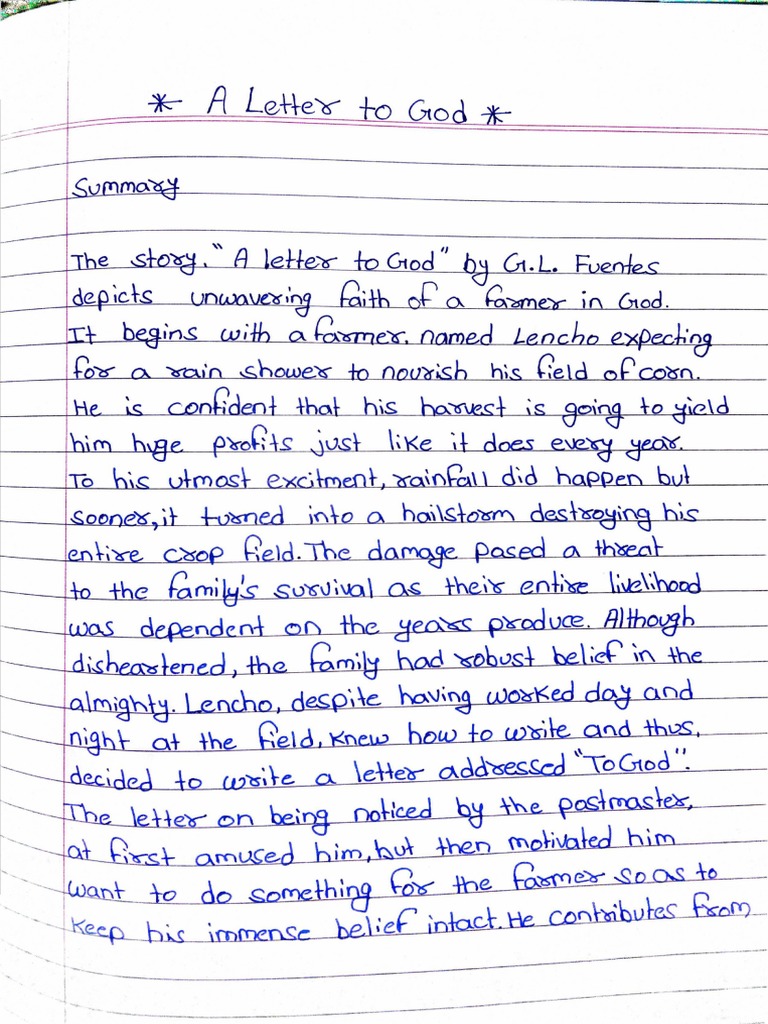 * A Letter to God *
Summary
The story. "A letter to God" by G.L. Fuentes
depicts unwavering faith of a farmer in God.
It begins with a farmer. named Lencho expecting
for a rain shower to nourish his field of corn.
He is confident that his harvest is going to yield
him huge profits just like it does every year.
To his utmost excitment, rainfall did happen but
sooner, it turned into a hailstorm destroying his
entire crop field. The damage posed a threat
to the family's survival as their entire livelihood
was dependent on the years produce. Although
disheartened, the family had robust belief in the
almighty. Lencho, despite having worked day and
night at the field, knew how to write and thus,
decided to write a letter addressed "To God".
The letter on being noticed by the postmaster,
at first amused him, but then motivated him
want to do something for the farmer so as to
keep his immense belief intact. He contributes from